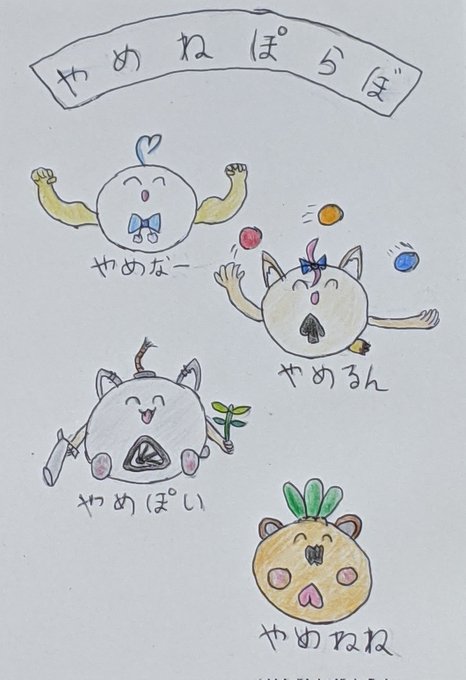 やめねぽらぼ
やめなー
やめるん
やめぽい
やめねね